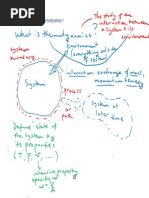 What is thermodynamics?
The study of the
interaction between
a system & its
environment
system
boundary
environment
(everything outside
of system)
interaction: exchange of mass,
momentum, energy
System
process
or
path
system at
later time
Define state of
the system by
its properties
(T, P, v, ... )
intensive property
specific vol